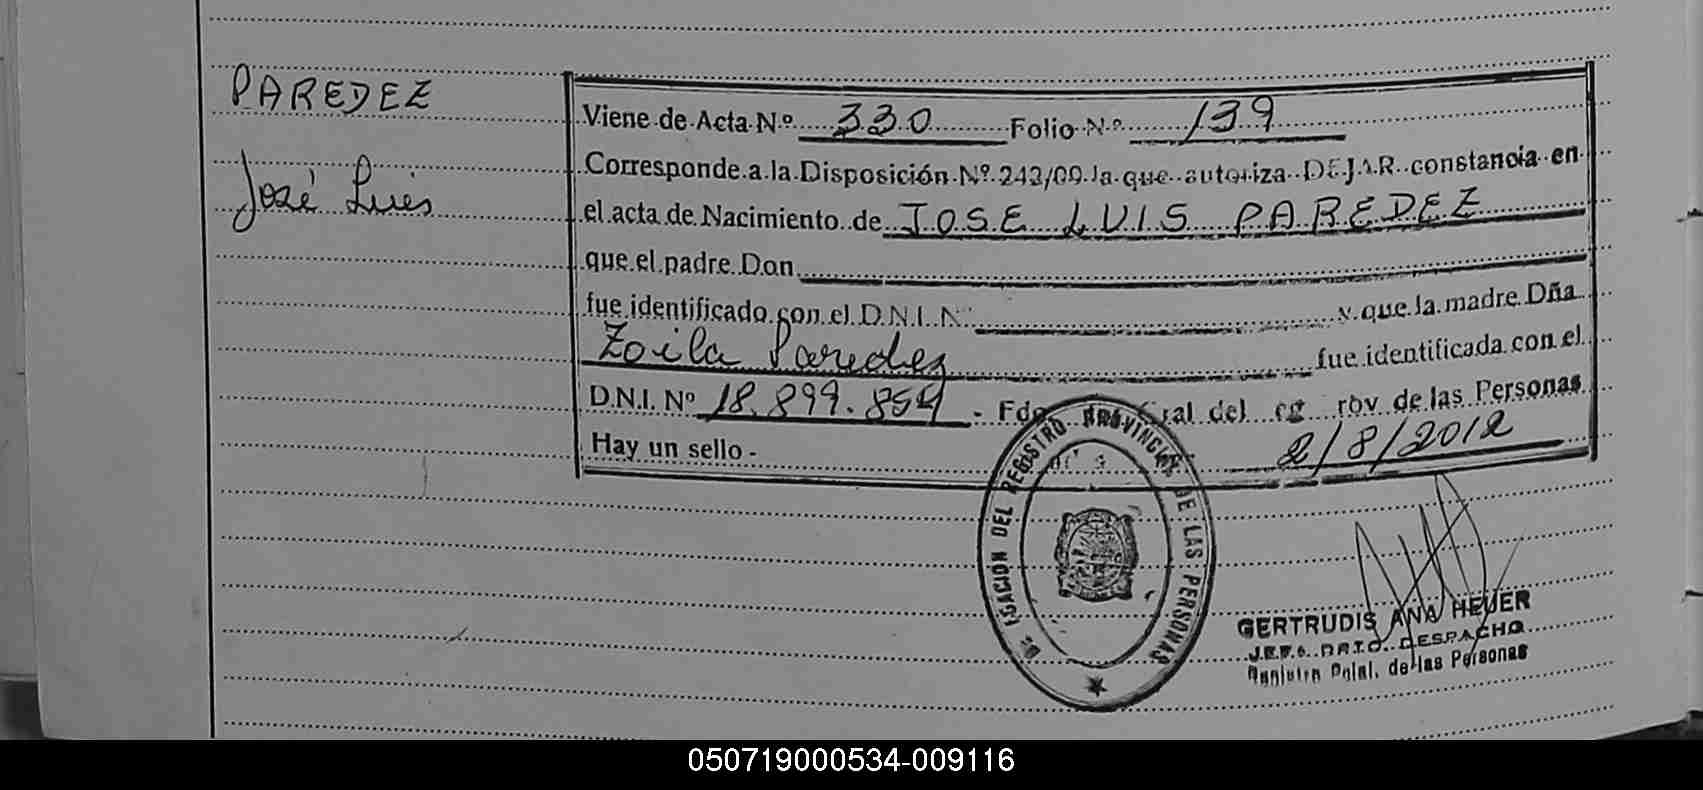 PAREDEZ
José Luis
Viene de Acta Nº 330 Folio Nº 139
Corresponde a la Disposición Nº 243/09 la que autoriza DEJAR constancia en
el acta de Nacimiento de JOSE LUIS PAREDEZ
que el padre Don
fue identificado con el D.N.I. Nº y que la madre Dña
Zoila Paredez fue identificada con el
D.N.I. Nº 18.899.854 - Fdo. ral del eg rov de las Personas
Hay un sello - 2/8/2012
DELEGACION DEL REGISTRO PROVINCIAL DE LAS PERSONAS
GERTRUDIS ANA HEUER
JEFE DPTO. DESPACHO
Registro Pcial. de las Personas
050719000534-009116